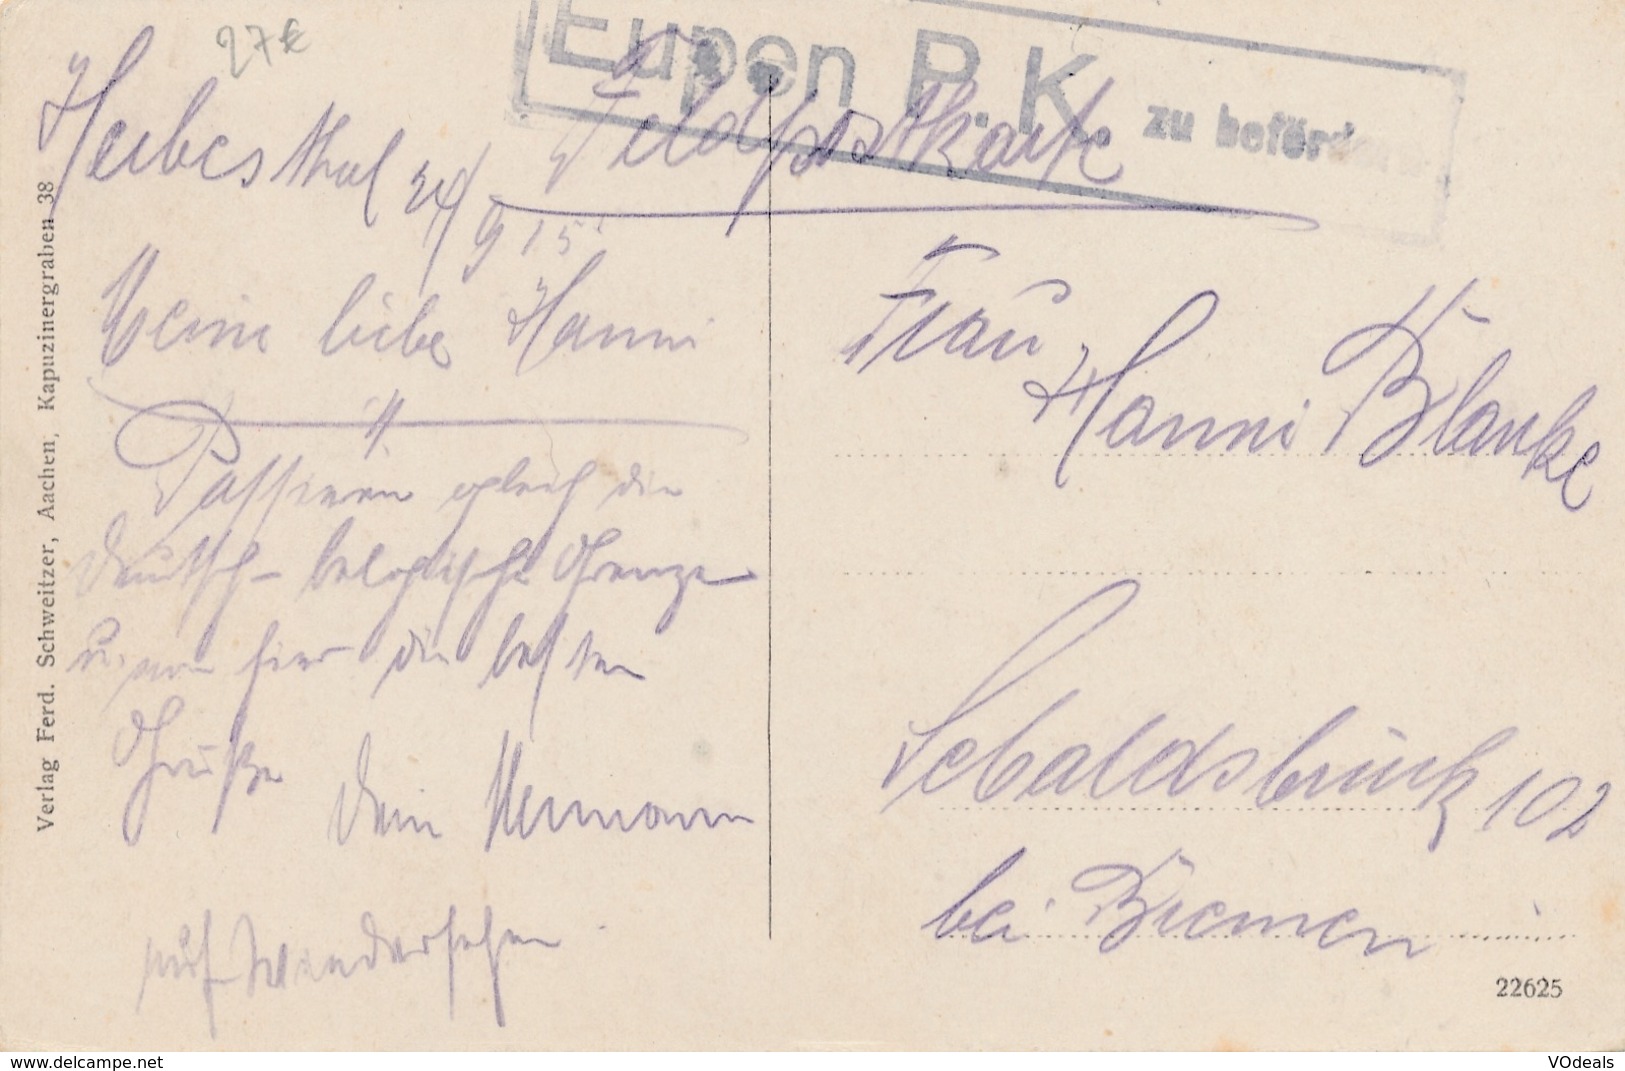 27€
Eupen P.K. zu beförd
Feldpostkarte
Herbesthal 24/9 15
Meine liebe Hanni
Passieren gleich die
deutsch-belgische Grenze
u. von hier die besten
Grüße Dein Hermann
auf Wiedersehen
Frau
Hanni Blanke
Sebaldsbrück 102
bei Bremen
22625
Verlag Ferd. Schweitzer, Aachen, Kapuzinergraben 38
www.delcampe.net
VOdeals